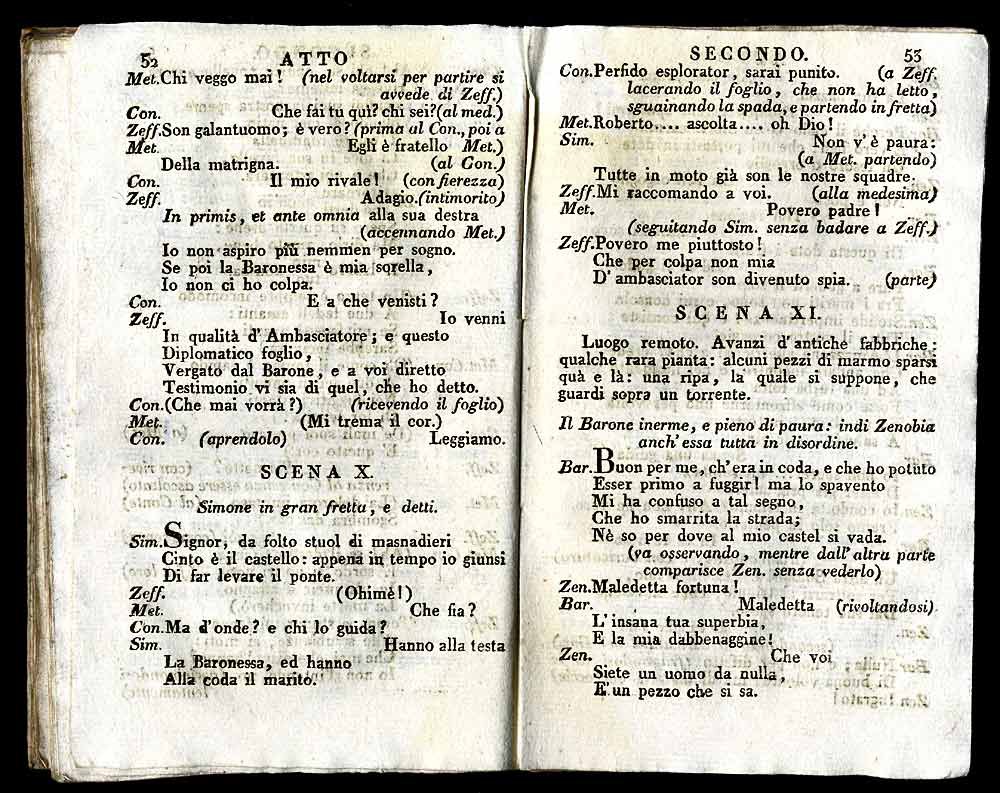 52 ATTO
Met.Chi veggo mai! (nel voltarsi per partire si
avvede di Zeff.)
Con. Che fai tu quì? chi sei?(al med.)
Zeff.Son galantuomo; è vero? (prima al Con., poi a
Met. Egli è fratello Met.)
Della matrigna. (al Con.)
Con. Il mio rivale! (con fierezza)
Zeff. Adagio.(intimorito)
In primis, et ante omnia alla sua destra
(accennando Met.)
Io non aspiro più nemmen per sogno.
Se poi la Baronessa è mia sorella,
Io non ci ho colpa.
Con. E a che venisti?
Zeff. Io venni
In qualità d' Ambasciatore; e questo
Diplomatico foglio,
Vergato dal Barone, e a voi diretto
Testimonio vi sia di quel, che ho detto.
Con.(Che mai vorrà?) (ricevendo il foglio)
Met. (Mi trema il cor.)
Con. (aprendolo) Leggiamo.
SCENA X.
Simone in gran fretta, e detti.
Sim.Signor, da folto stuol di masnadieri
Cinto è il castello: appena in tempo io giunsi
Di far levare il ponte.
Zeff. (Ohimè!)
Met. Che fia?
Con.Ma d'onde? e chi lo guida?
Sim. Hanno alla testa
La Baronessa, ed hanno
Alla coda il marito.
SECONDO. 53
Con.Perfido esplorator, sarai punito. (a Zeff.
lacerando il foglio, che non ha letto,
sguainando la spada, e partendo in fretta)
Met.Roberto.... ascolta.... oh Dio!
Sim. Non v'è paura:
(a Met. partendo)
Tutte in moto già son le nostre squadre.
Zeff.Mi raccomando a voi. (alla medesima)
Met. Povero padre!
(seguitando Sim. senza badare a Zeff.)
Zeff.Povero me piuttosto!
Che per colpa non mia
D' ambasciator son divenuto spia. (parte)
SCENA XI.
Luogo remoto. Avanzi d'antiche fabbriche:
qualche rara pianta: alcuni pezzi di marmo sparsi
quà e là: una ripa, la quale si suppone, che
guardi sopra un torrente.
Il Barone inerme, e pieno di paura: indi Zenobia
anch' essa tutta in disordine.
Bar.Buon per me, ch'era in coda, e che ho potuto
Esser primo a fuggir! ma lo spavento
Mi ha confuso a tal segno,
Che ho smarrita la strada;
Nè so per dove al mio castel si vada.
(va osservando, mentre dall' altra parte
comparisce Zen. senza vederlo)
Zen.Maledetta fortuna!
Bar. Maledetta (rivoltandosi)
L'insana tua superbia,
E la mia dabbenaggine!
Zen. Che voi
Siete un uomo da nulla,
E' un pezzo che si sa.